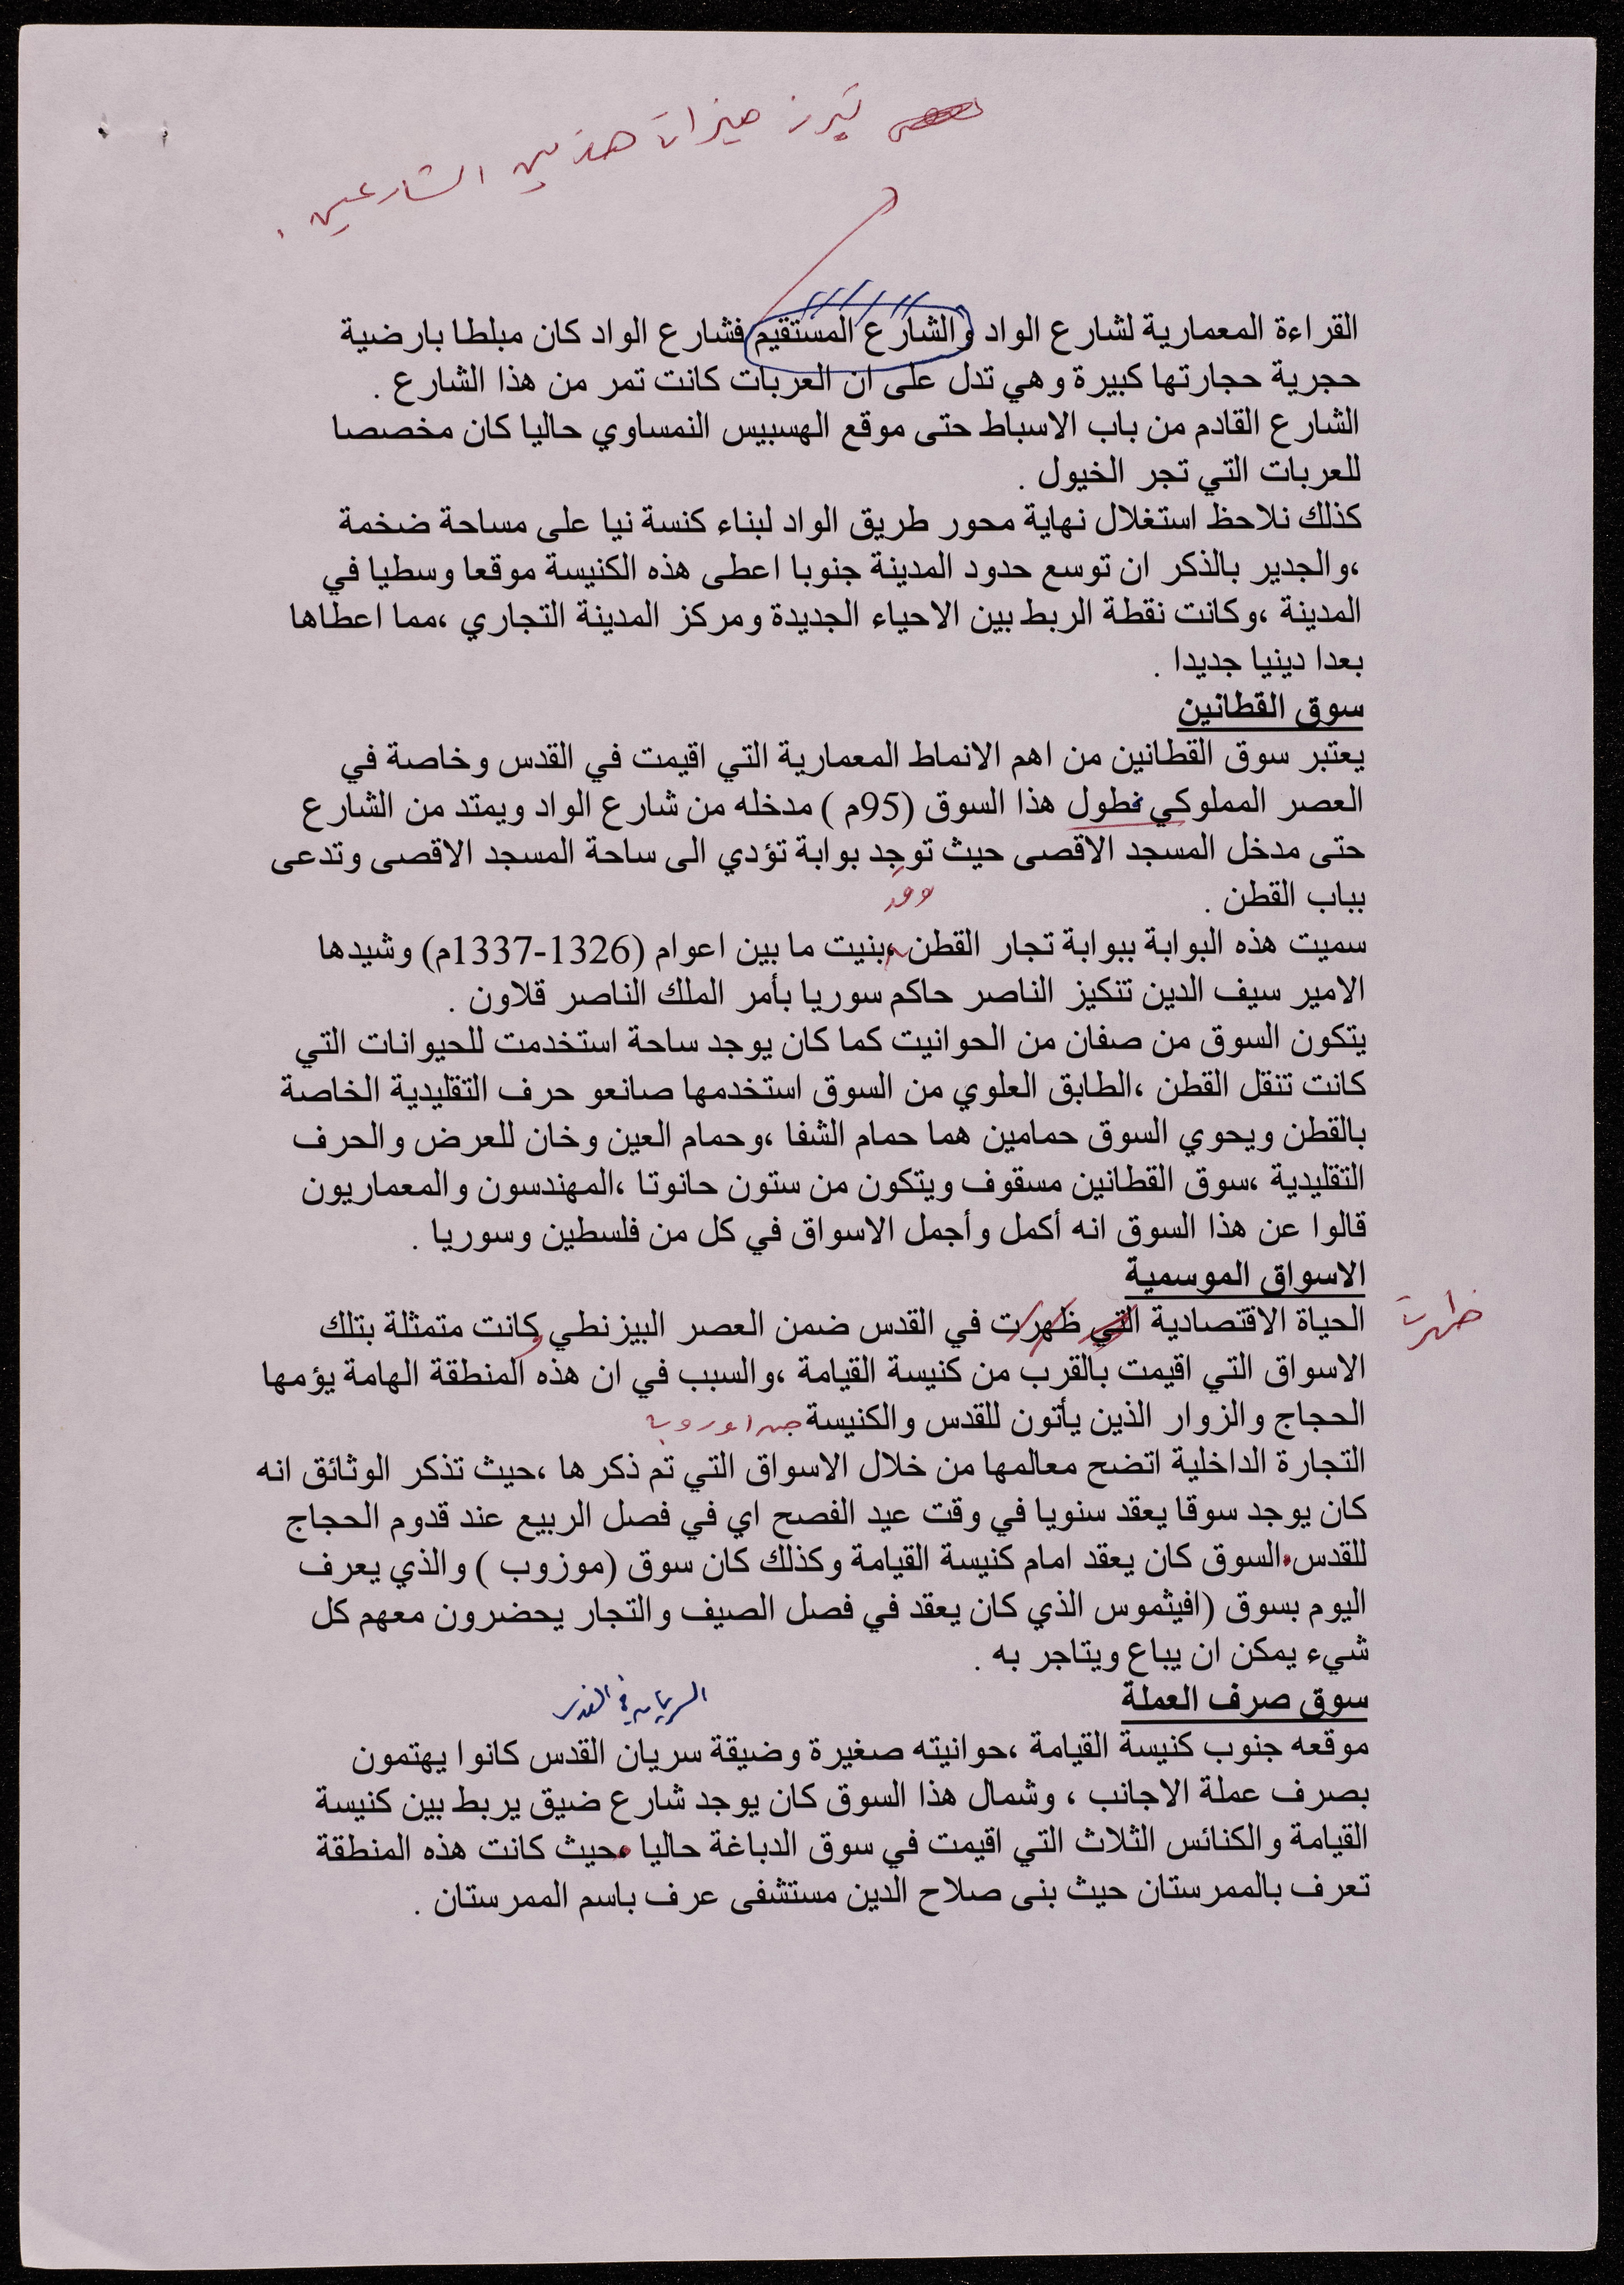 تبرز ميزات هذين الشارعين .
القراءة المعمارية لشارع الواد والشارع المستقيم فشارع الواد كان مبلطا بارضية
حجرية حجارتها كبيرة وهي تدل على ان العربات كانت تمر من هذا الشارع .
الشارع القادم من باب الاسباط حتى موقع الهسبيس النمساوي حاليا كان مخصصا
للعربات التي تجر الخيول .
كذلك نلاحظ استغلال نهاية محور طريق الواد لبناء كنسة نيا على مساحة ضخمة
،والجدير بالذكر ان توسع حدود المدينة جنوبا اعطى هذه الكنيسة موقعا وسطيا في
المدينة ،وكانت نقطة الربط بين الاحياء الجديدة ومركز المدينة التجاري ،مما اعطاها
بعدا دينيا جديدا .
سوق القطانين
يعتبر سوق القطانين من اهم الانماط المعمارية التي اقيمت في القدس وخاصة في
العصر المملوكي فطول هذا السوق (95م ) مدخله من شارع الواد ويمتد من الشارع
حتى مدخل المسجد الاقصى حيث توجد بوابة تؤدي الى ساحة المسجد الاقصى وتدعى
بباب القطن .
وقد
سميت هذه البوابة ببوابة تجار القطن ،بنيت ما بين اعوام (1326-1337م) وشيدها
الامير سيف الدين تنكيز الناصر حاكم سوريا بأمر الملك الناصر قلاون .
يتكون السوق من صفان من الحوانيت كما كان يوجد ساحة استخدمت للحيوانات التي
كانت تنقل القطن ،الطابق العلوي من السوق استخدمها صانعو حرف التقليدية الخاصة
بالقطن ويحوي السوق حمامين هما حمام الشفا ،وحمام العين وخان للعرض والحرف
التقليدية ،سوق القطانين مسقوف ويتكون من ستون حانوتا ،المهندسون والمعماريون
قالوا عن هذا السوق انه أكمل وأجمل الاسواق في كل من فلسطين وسوريا .
الاسواق الموسمية
ظهرت
الحياة الاقتصادية التي ظهرت في القدس ضمن العصر البيزنطي وكانت متمثلة بتلك
الاسواق التي اقيمت بالقرب من كنيسة القيامة ،والسبب في ان هذه المنطقة الهامة يؤمها
الحجاج والزوار الذين يأتون للقدس والكنيسة من اوروبا
التجارة الداخلية اتضح معالمها من خلال الاسواق التي تم ذكرها ،حيث تذكر الوثائق انه
كان يوجد سوقا يعقد سنويا في وقت عيد الفصح اي في فصل الربيع عند قدوم الحجاج
للقدس .السوق كان يعقد امام كنيسة القيامة وكذلك كان سوق (موزوب ) والذي يعرف
اليوم بسوق (افيثموس الذي كان يعقد في فصل الصيف والتجار يحضرون معهم كل
شيء يمكن ان يباع ويتاجر به .
سوق صرف العملة
السريان في القدس
موقعه جنوب كنيسة القيامة ،حوانيته صغيرة وضيقة سريان القدس كانوا يهتمون
بصرف عملة الاجانب ، وشمال هذا السوق كان يوجد شارع ضيق يربط بين كنيسة
القيامة والكنائس الثلاث التي اقيمت في سوق الدباغة حاليا .حيث كانت هذه المنطقة
تعرف بالممرستان حيث بنى صلاح الدين مستشفى عرف باسم الممرستان .